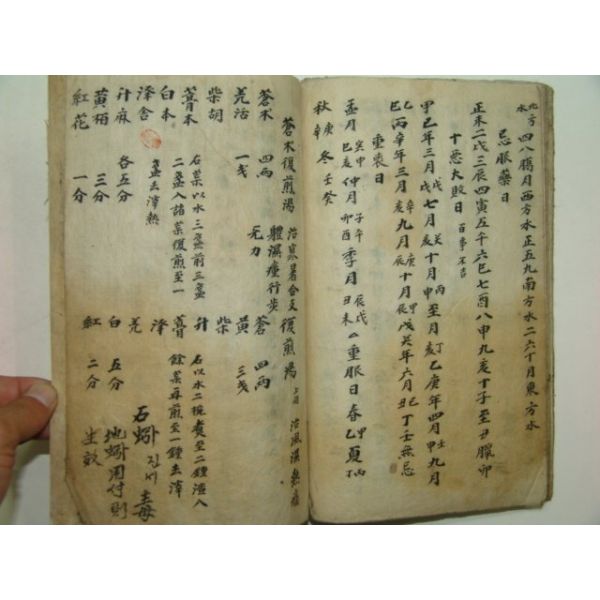 北方水四八臘月西方水正五九南方水二六十月東方水
忌服藥日
正未二戌三辰四寅五午六巳七酉八申九亥十子至丑臘卯
十惡大敗日 百事不吉
甲己年三月戊戌七月癸亥十月丙申至月丁亥乙庚年四月壬申九月
乙巳丙辛年三月辛巳九月庚辰十月甲辰戊癸年六月己丑丁壬無忌
重喪日
孟月寅申巳亥仲月子午卯酉季月辰戌丑未 重服日春甲乙夏丙丁
秋庚辛冬壬癸
蒼朮復煎湯 治寒暑合 體濕 行步无力
蒼朮 四兩
羌活 一戔
柴胡
藁本
白朮
澤舍
升麻 各五分
黃栢 三分
紅花 一分
右藥以水三盞煎三盞
二盞入諸藥復煎至一
盞去滓熱
復煎湯 上同 治風濕熱
蒼 四兩
黃 三戔
柴
升
藁
澤
羌
白 五分
紅 二分
右以水二椀煮至二鍾渣入
餘藥再煎至一鍾去滓
石 진 毒
地 用付則
生效